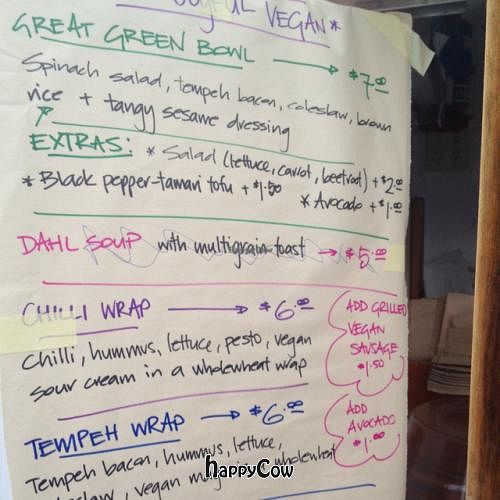 VEGAN*
GREAT GREEN BOWL → $7.00
Spinach salad, tempeh bacon, coleslaw, brown
rice + tangy sesame dressing
EXTRAS: * Salad (lettuce, carrot, beetroot) + $2.00
* Black pepper-tamari tofu + $1.50
* Avocado + $1.00
DAHL SOUP with multigrain toast → $5.00
CHILLI WRAP → $6.00
Chilli, hummus, lettuce, pesto, vegan
sour cream in a wholewheat wrap
ADD GRILLED
VEGAN
SAUSAGE
$1.50
TEMPEH WRAP → $6.00
Tempeh bacon, hummus, lettuce,
vegan wholewheat
ADD
AVOCADO
$1.00
happyCow